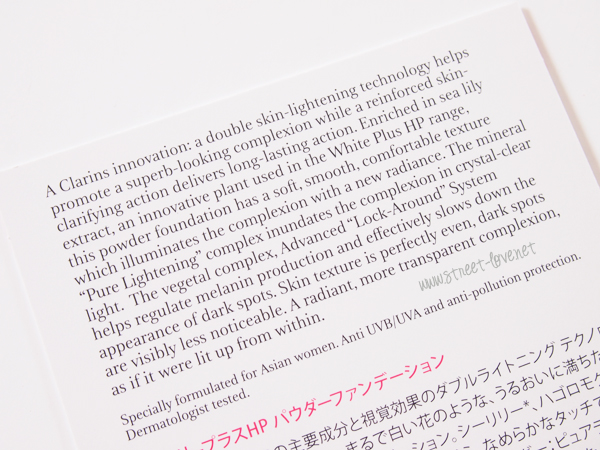 A Clarins innovation: a double skin-lightening technology helps
promote a superb-looking complexion while a reinforced skin-
clarifying action delivers long-lasting action. Enriched in sea lily
extract, an innovative plant used in the White Plus HP range,
this powder foundation has a soft, smooth, comfortable texture
which illuminates the complexion with a new radiance. The mineral
“Pure Lightening” complex inundates the complexion in crystal-clear
light. The vegetal complex, Advanced “Lock-Around” System
helps regulate melanin production and effectively slows down the
appearance of dark spots. Skin texture is perfectly even, dark spots
are visibly less noticeable. A radiant, more transparent complexion,
as if it were lit up from within.
www.street-love.net
Specially formulated for Asian women. Anti UVB/UVA and anti-pollution protection.
Dermatologist tested.
プラスHP パウダーファンデーション
の主要成分と視覚効果のダブルライトニング テクノロ
まるで白い花のような、うるおいに満ちた
ション。シーリリー*、ハゴロモグ
なめらかなタッチで
ピュアラ